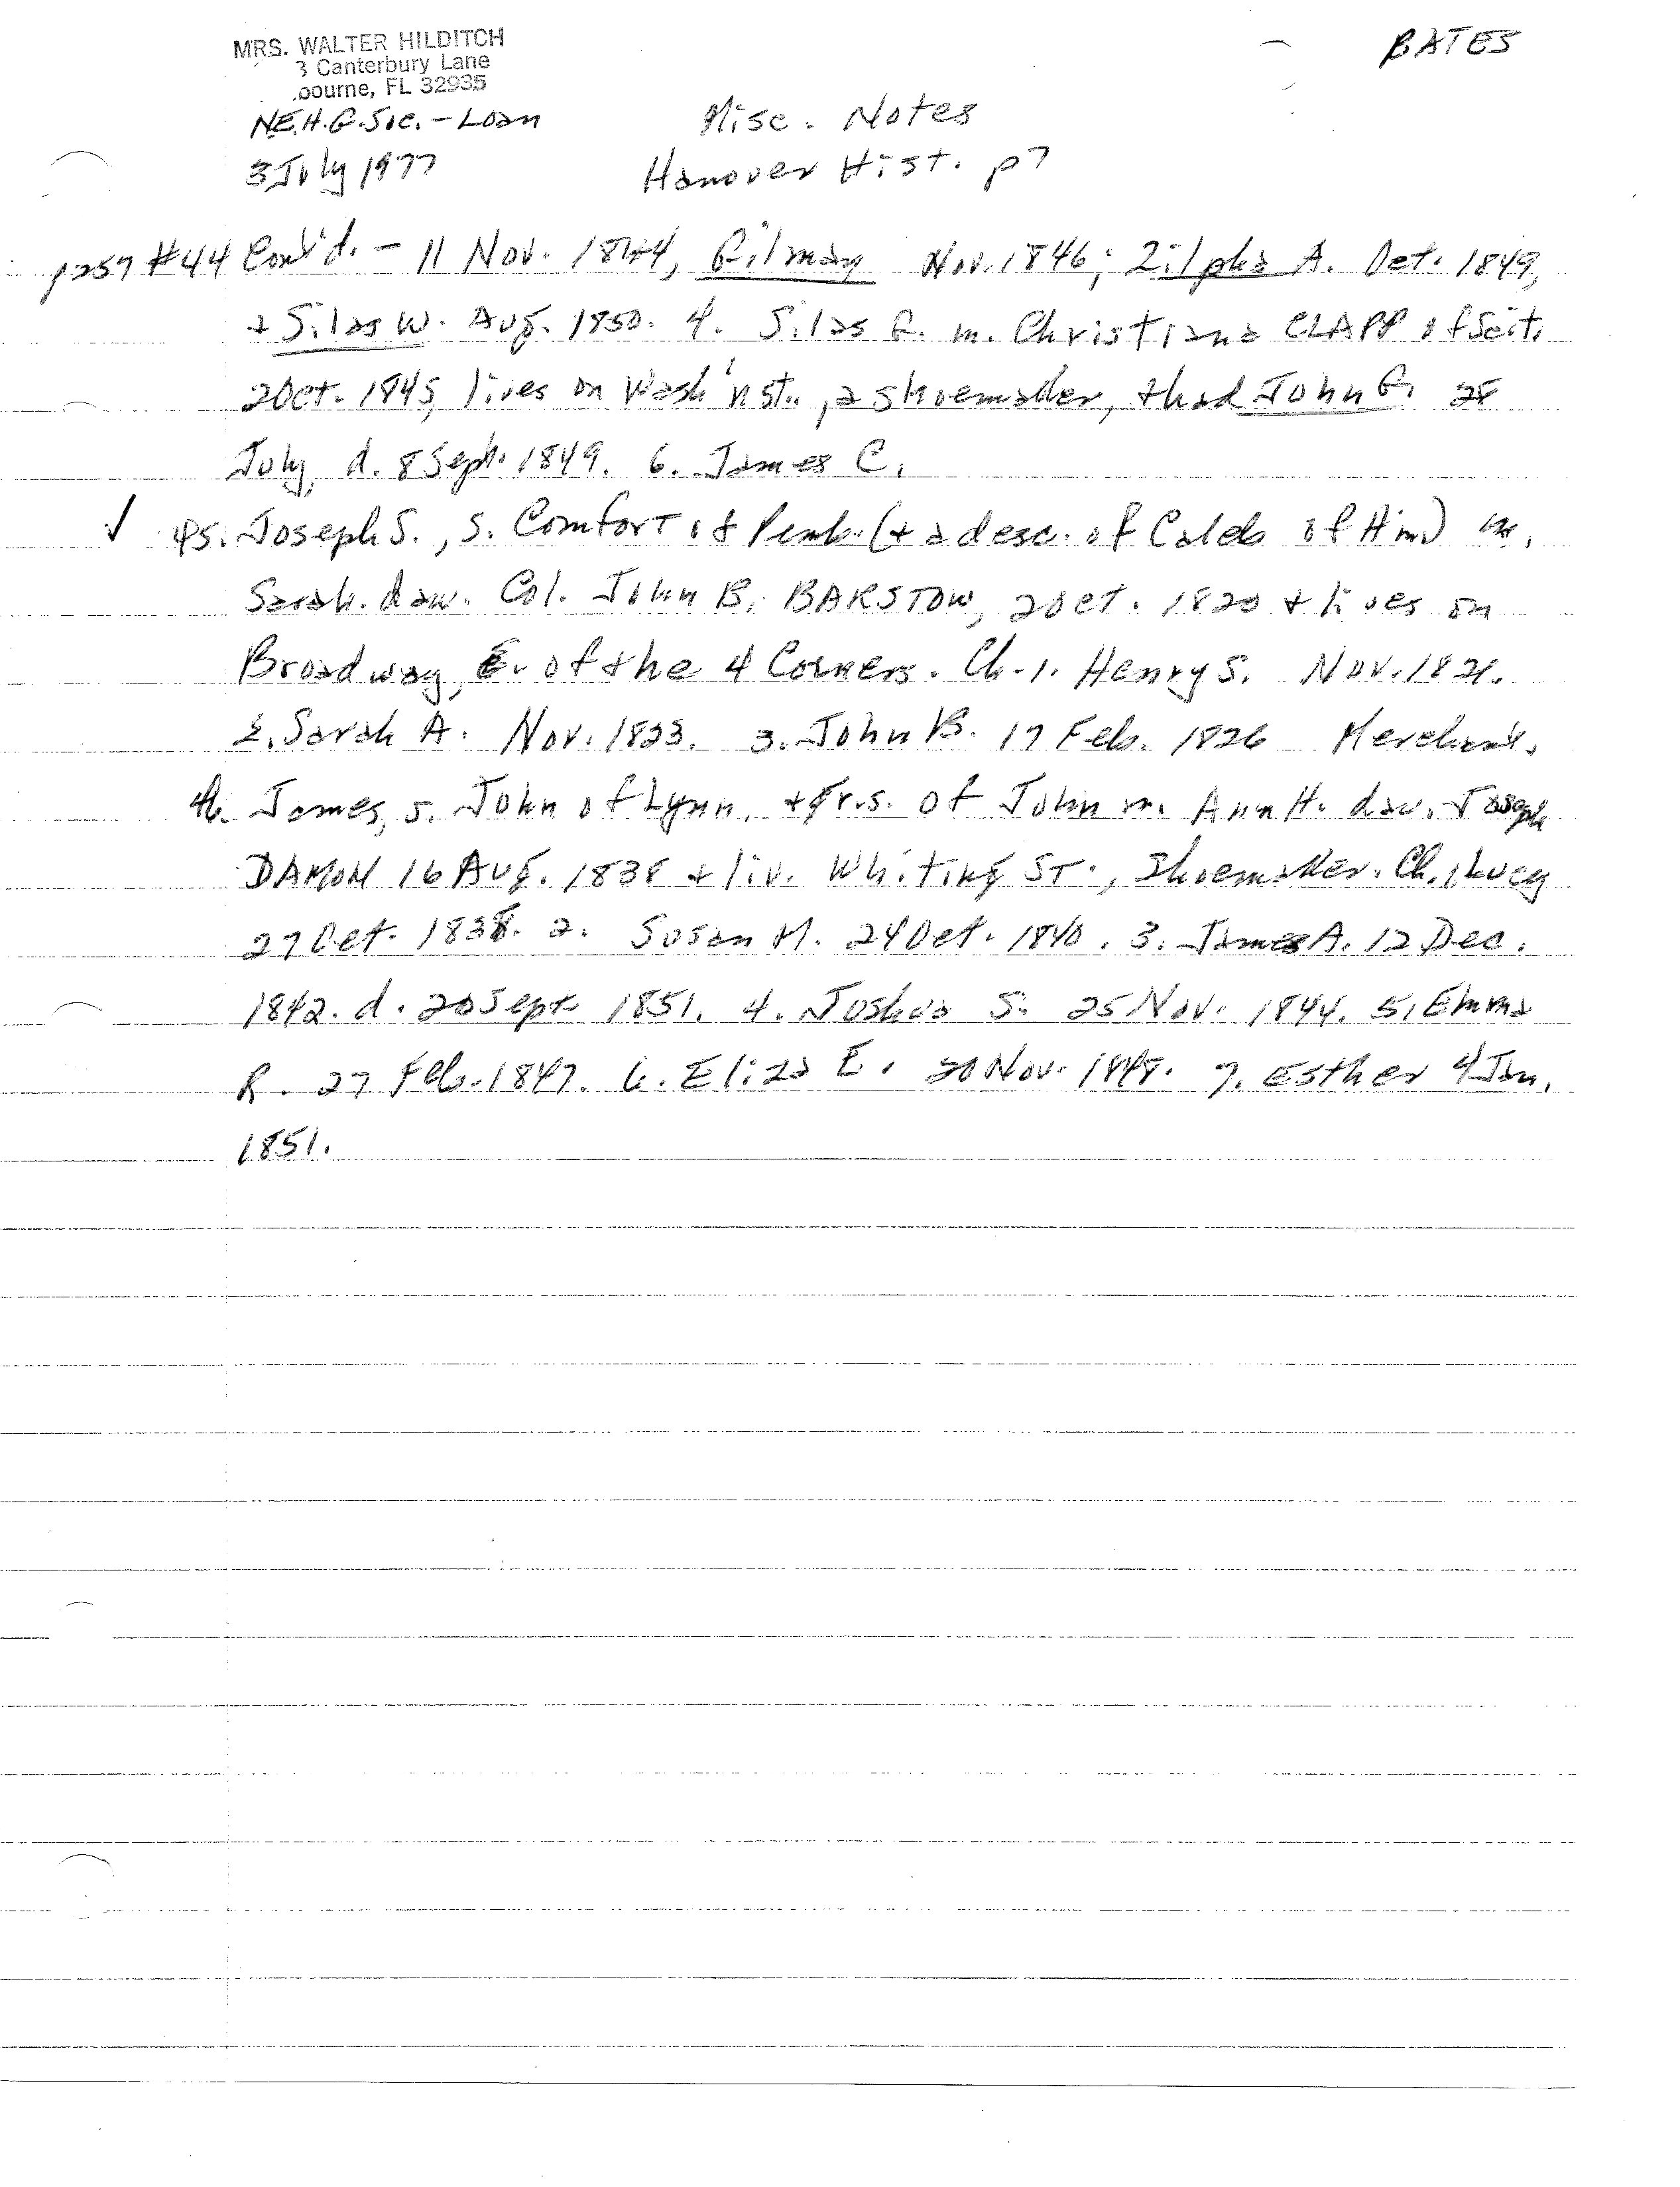 MRS. WALTER HILDITCH
3 Canterbury Lane
bourne, FL 32935
BATES
N.E.H.G.Soc. - Loan
Misc. Notes
3 July 1977
Hanover Hist. p7
p257 #44 Cont'd. - 11 Nov. 1844, Gilman Nov. 1846; Zilpha A. Oct. 1849,
+ Silas W. Aug. 1850. 4. Silas G. m. Christiana CLAPP of Scit.
2 Oct. 1845, lives on Wash'n st., a shoemaker, + had John G. 28
July, d. 8 Sept. 1849. 6. James C.
✓ 45. Joseph S., s. Comfort of Pemb. (+ a desc. of Caleb of Him) m.
Sarah. daw. Col. John B. BARSTOW, 2 Oct. 1820 + lives on
Broadway, E. of the 4 Corners. Ch. 1. Henry S. Nov. 1821.
2. Sarah A. Nov. 1823. 3. John B. 17 Feb. 1826 Merchant.
46. James, s. John of Lynn, + gr.s. of John m. Ann H. daw. Joseph
DAMON 16 Aug. 1838 + liv. Whiting ST., Shoemaker. Ch. 1. Lucy
27 Oct. 1838. 2. Susan M. 24 Oct. 1840. 3. James A. 12 Dec.
1842. d. 20 Sept. 1851. 4. Joshua S. 25 Nov. 1844. 5. Emma
R. 27 Feb. 1847. 6. Eliza E. 20 Nov. 1848. 7. Esther 4 Jan.
1851.